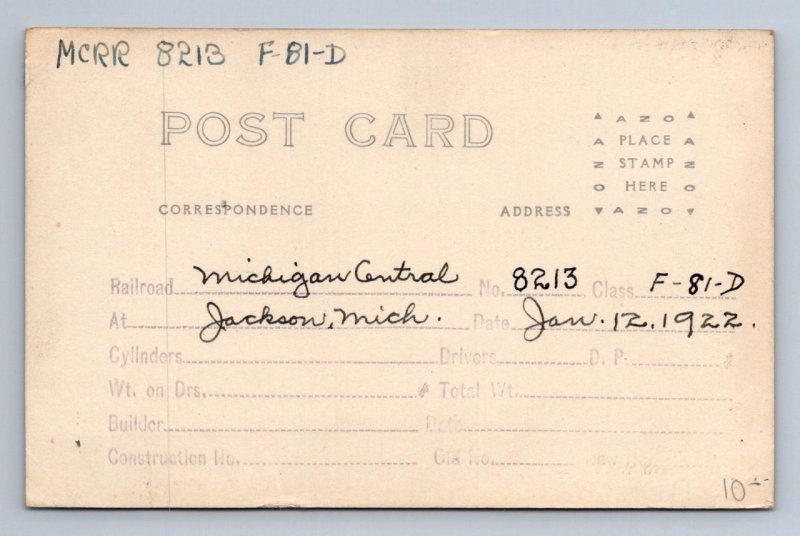 MCRR 8213 F-81-D
POST CARD
▲ AZO ▲
A PLACE A
N STAMP Z
O HERE O
▼ AZO ▼
CORRESPONDENCE ADDRESS
Railroad Michigan Central No. 8213 Class F-81-D
At Jackson, Mich. Date Jan. 12. 1922.
Cylinders Drivers B. P. #
Wt. on Drs. # Total Wt.
Builder Date
Construction No. Old No. New
10-